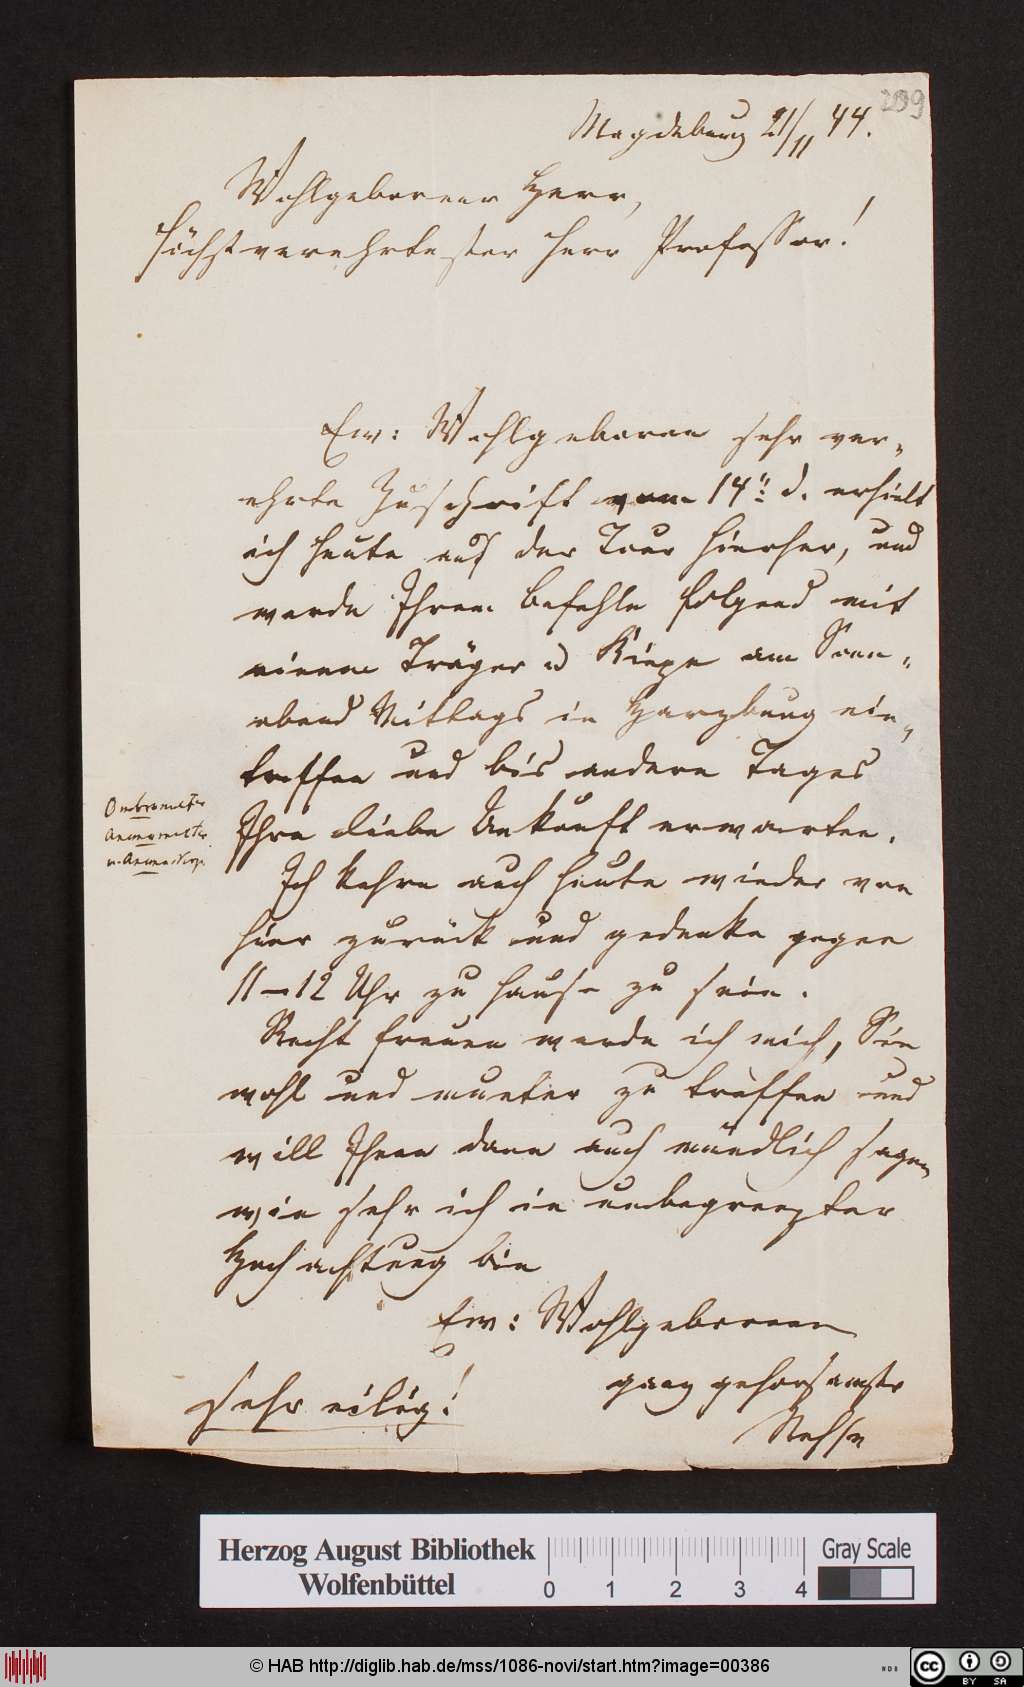 239
Magdeburg 21/11 44.
Wohlgeborner Herr,
Höchstverehrtester Herr Professor!
Ew: Wohlgeboren sehr ver-
ehrte Zuschrift vom 14t: d. erhielt
ich heute auf der Tour hierher, und
werde Ihrem Befehle folgend mit
einem Träger u Kiepe am Sonn-
abend Mittags in Harzburg ein-
treffen und bis andern Tages
Ihre liebe Ankunft erwarten.
Ombrometer
Anemometer
u. Anemoskop.
Ich kehre auch heute wieder von
hier zurück und gedenke gegen
11–12 Uhr zu Hause zu sein.
Recht freuen werde ich mich, Sie
wohl und munter zu treffen und
will Ihnen dann auch mündlich sagen
wie sehr ich in unbegrenzter
Hochachtung bin
Ew: Wohlgeboren
ganz gehorsamster
Nehse
sehr eilig!
Herzog August Bibliothek
Wolfenbüttel
0 1 2 3 4
Gray Scale
© HAB http://diglib.hab.de/mss/1086-novi/start.htm?image=00386
cc BY SA